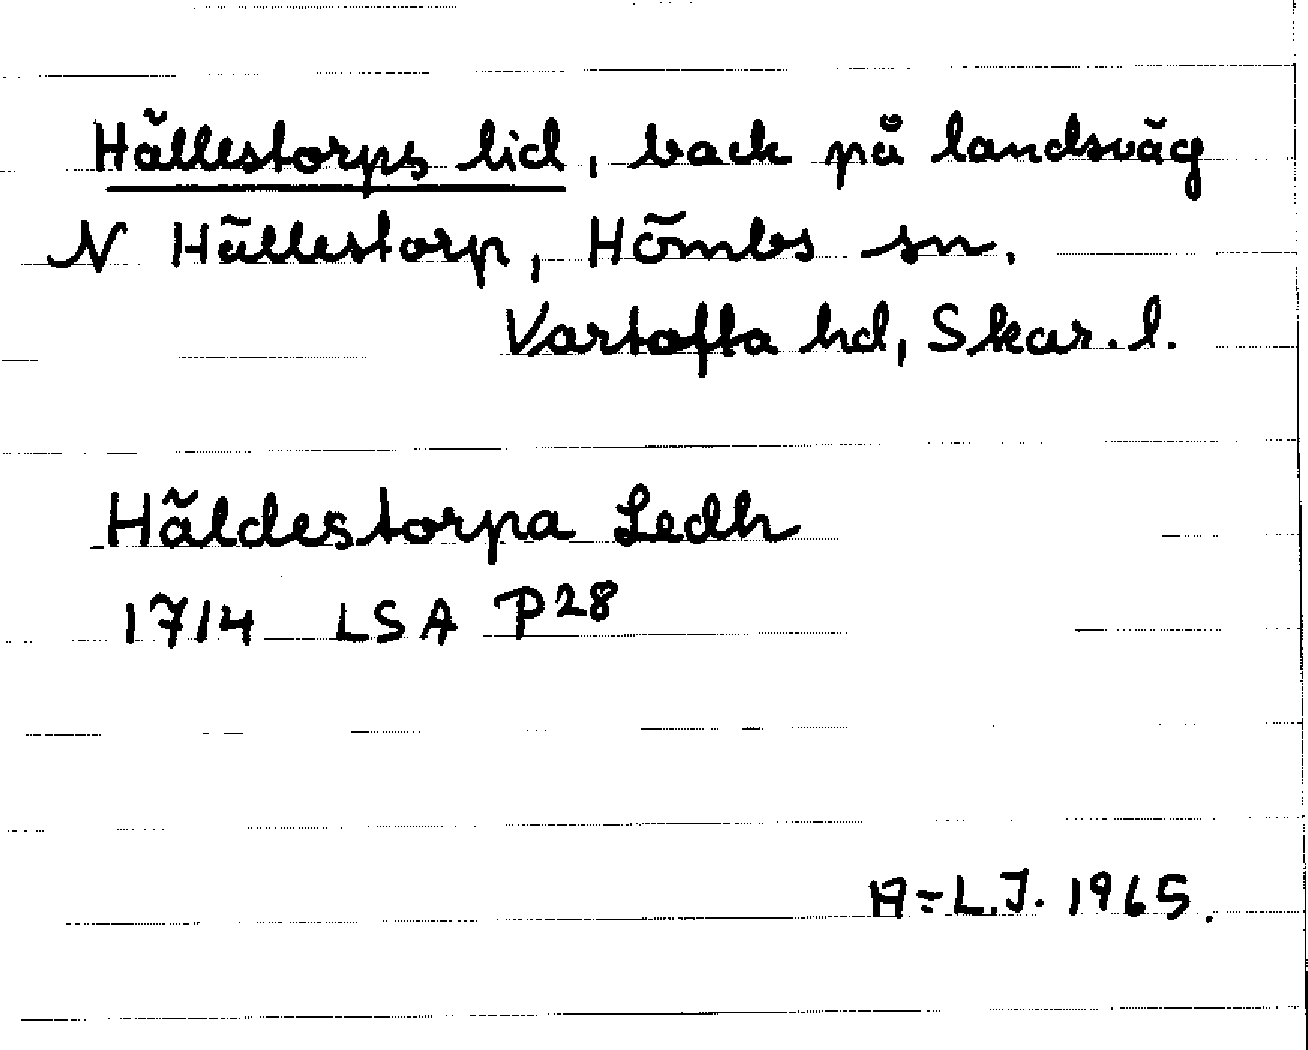 Hällestorps lid, back på landsväg
N Hällestorp, Hömbs sn.
Vartofta hd, Skar. l.
Häldestorpa Ledh
1714 LSA P28
A-L.J. 1965.